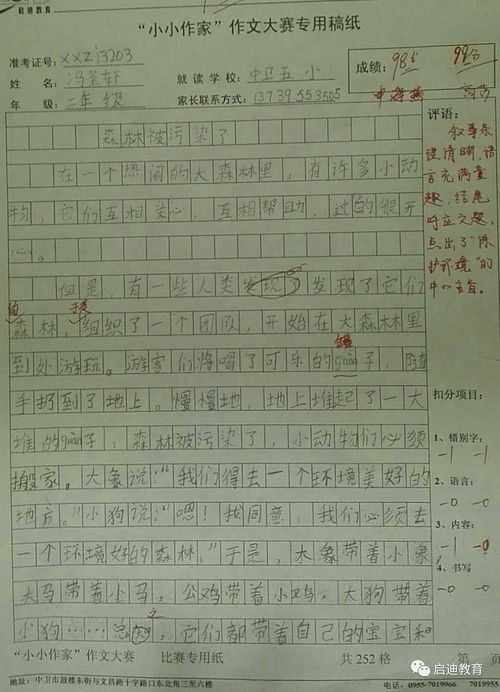 启迪教育
“小小作家”作文大赛专用稿纸
准考证号：XXZj3203
姓 名：冯圣轩
就 读 学 校：中卫五小
年 级：二年级
家长联系方式：13739553505
成绩：98分 99分
森林被污染了
在一个热闹的大森林里，有许多小动
物，它们互相关心，互相帮助，过的很开
心。
但是，有一些人类发现了发现了它们
的森林，于是组织了一个团队，开始在大森林里
到处游玩。游客们将喝了可乐的guàn子，随
罐
手扔到了地上。慢慢地，地上堆起了一大
堆的guàn子，森林被污染了，小动物们必须
搬家。大象说：“我们得去一个环境美好的
地方。”小狗说：“嗯！我同意，我们必须去
一个环境好的森林。”于是，大象带着小象，
大马带着小马，公鸡带着小鸡，大狗带着
小狗……总之，它们都带着自己的宝宝和
评语：
叙事条
理清晰，语
言充满童
趣，结尾
呼应文题，
点出了“保
护环境”的
中心主旨。
扣分项目：
1、错别字：
-1 -1
2、语言：
-0 -0
3、内容：
-1 -0
4、书写
-0 -0
“小小作家”作文大赛 比赛专用纸 共 252 格 第 页
地址：中卫市鼓楼东街与文昌路十字路口东北角三至六楼 电话：0955-7019966 7019955
启迪教育